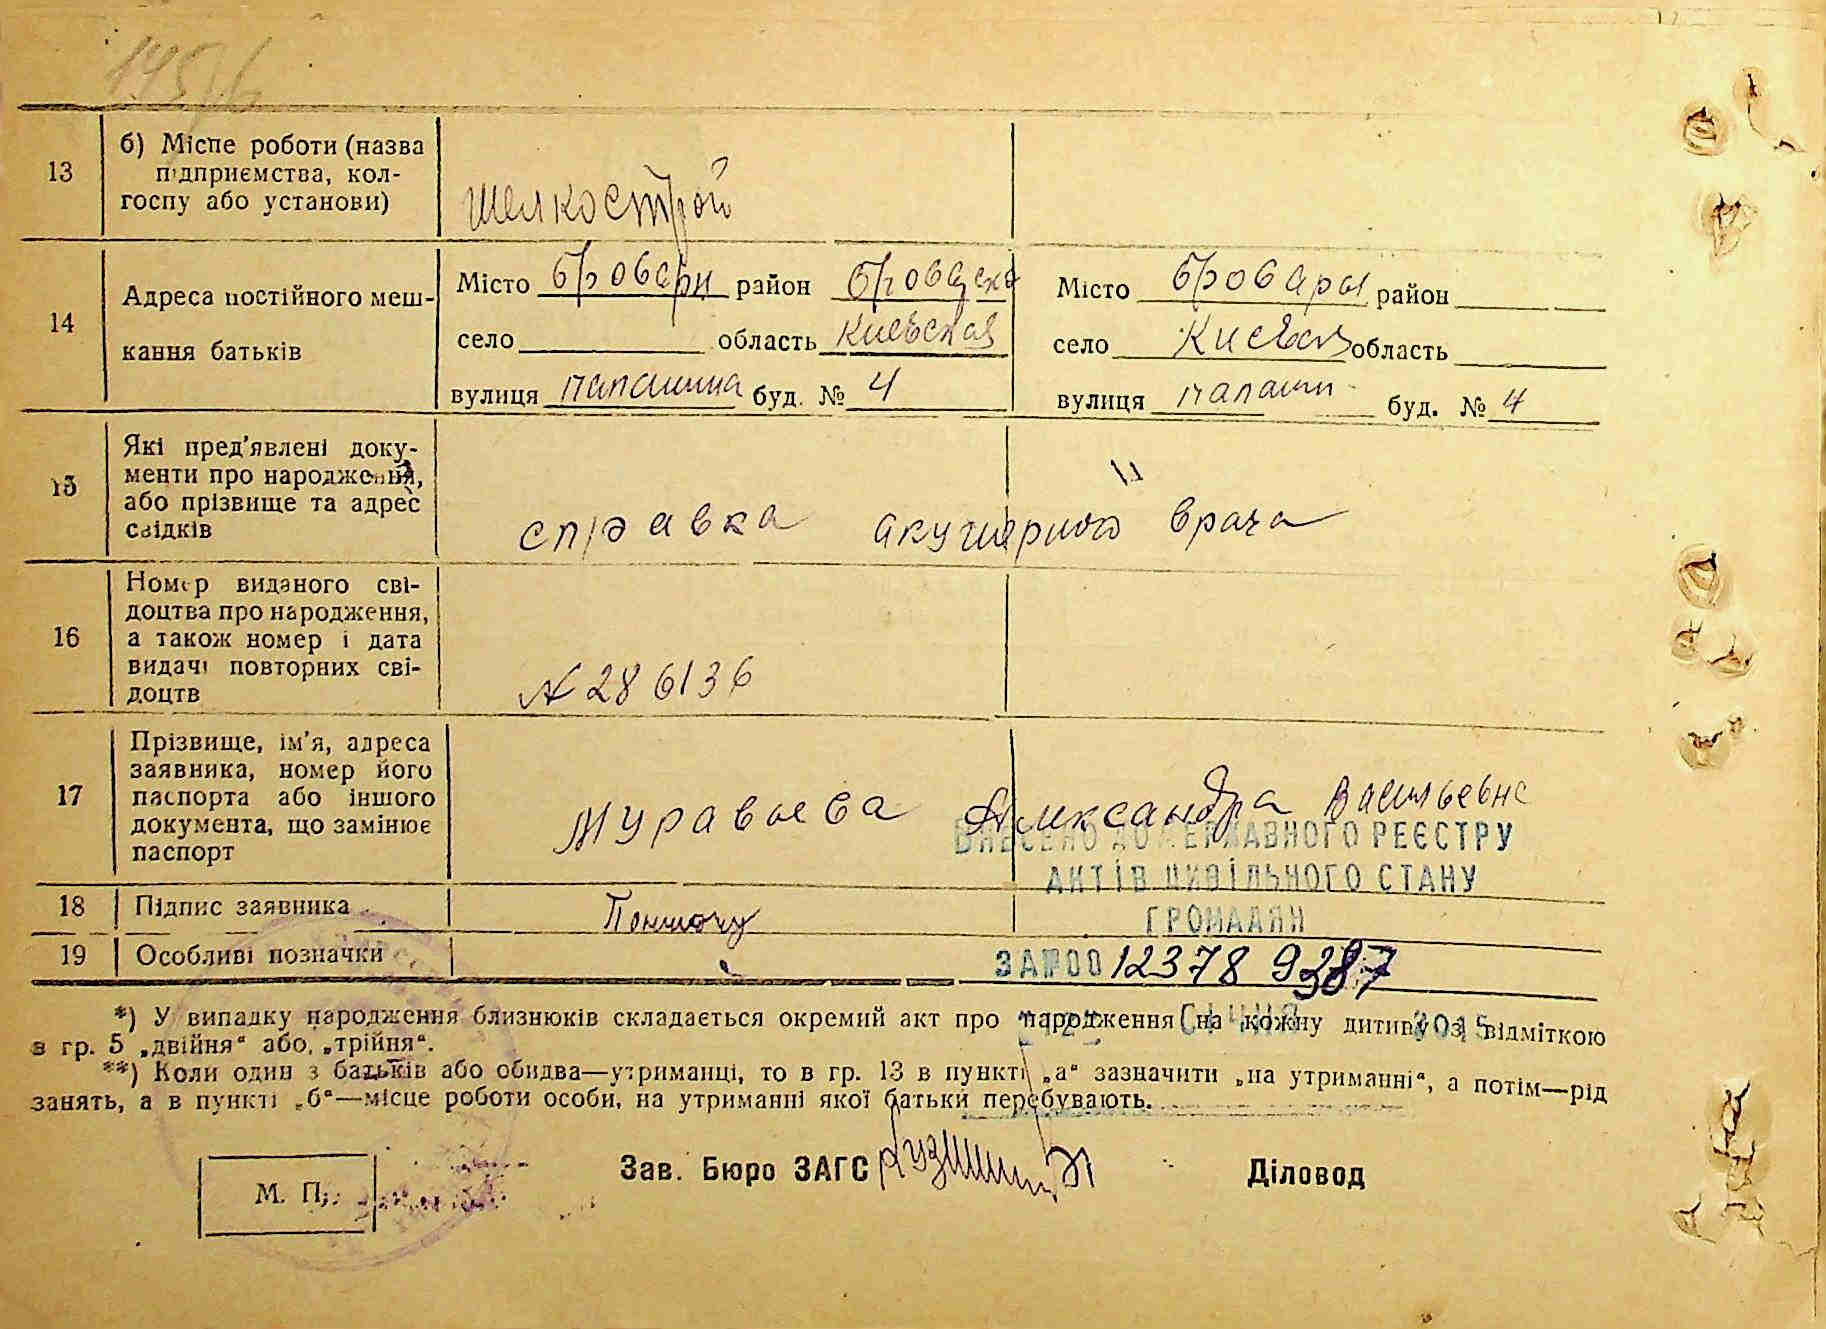 13
б) Місце роботи (назва
підприємства, кол-
госпу або установи)
Шелкострой
14
Адреса постійного меш-
кання батьків
Місто бровари район
село область Киевская
вулиця папашина буд. № 4
Місто бровары район
село область
вулиця буд. № 4
15
Які пред'явлені доку-
менти про народження,
або прізвище та адрес
свідків
справка акушерного врача
16
Номер виданого сві-
доцтва про народження,
а також номер і дата
видачі повторних сві-
доцтв
№ 286136
17
Прізвище, ім'я, адреса
заявника, номер його
паспорта або іншого
документа, що замінює
паспорт
Муравьева Александра Васильевна
ВНЕСЕНО ДО ДЕРЖАВНОГО РЕЄСТРУ
АКТІВ ЦИВІЛЬНОГО СТАНУ
ГРОМАДЯН
18
Підпис заявника
19
Особливі позначки
ЗА №00 12378
СІЧНЯ 2015
*) У випадку народження близнюків складається окремий акт про народження на кожну дитину з відміткою
в гр. 5 „двійня" або „трійня".
**) Коли один з батьків або обидва—утриманці, то в гр. 13 в пункті „а" зазначити „на утриманні", а потім—рід
занять, а в пункті „б"—місце роботи особи, на утриманні якої батьки перебувають.
Зав. Бюро ЗАГС
Діловод
М. П.